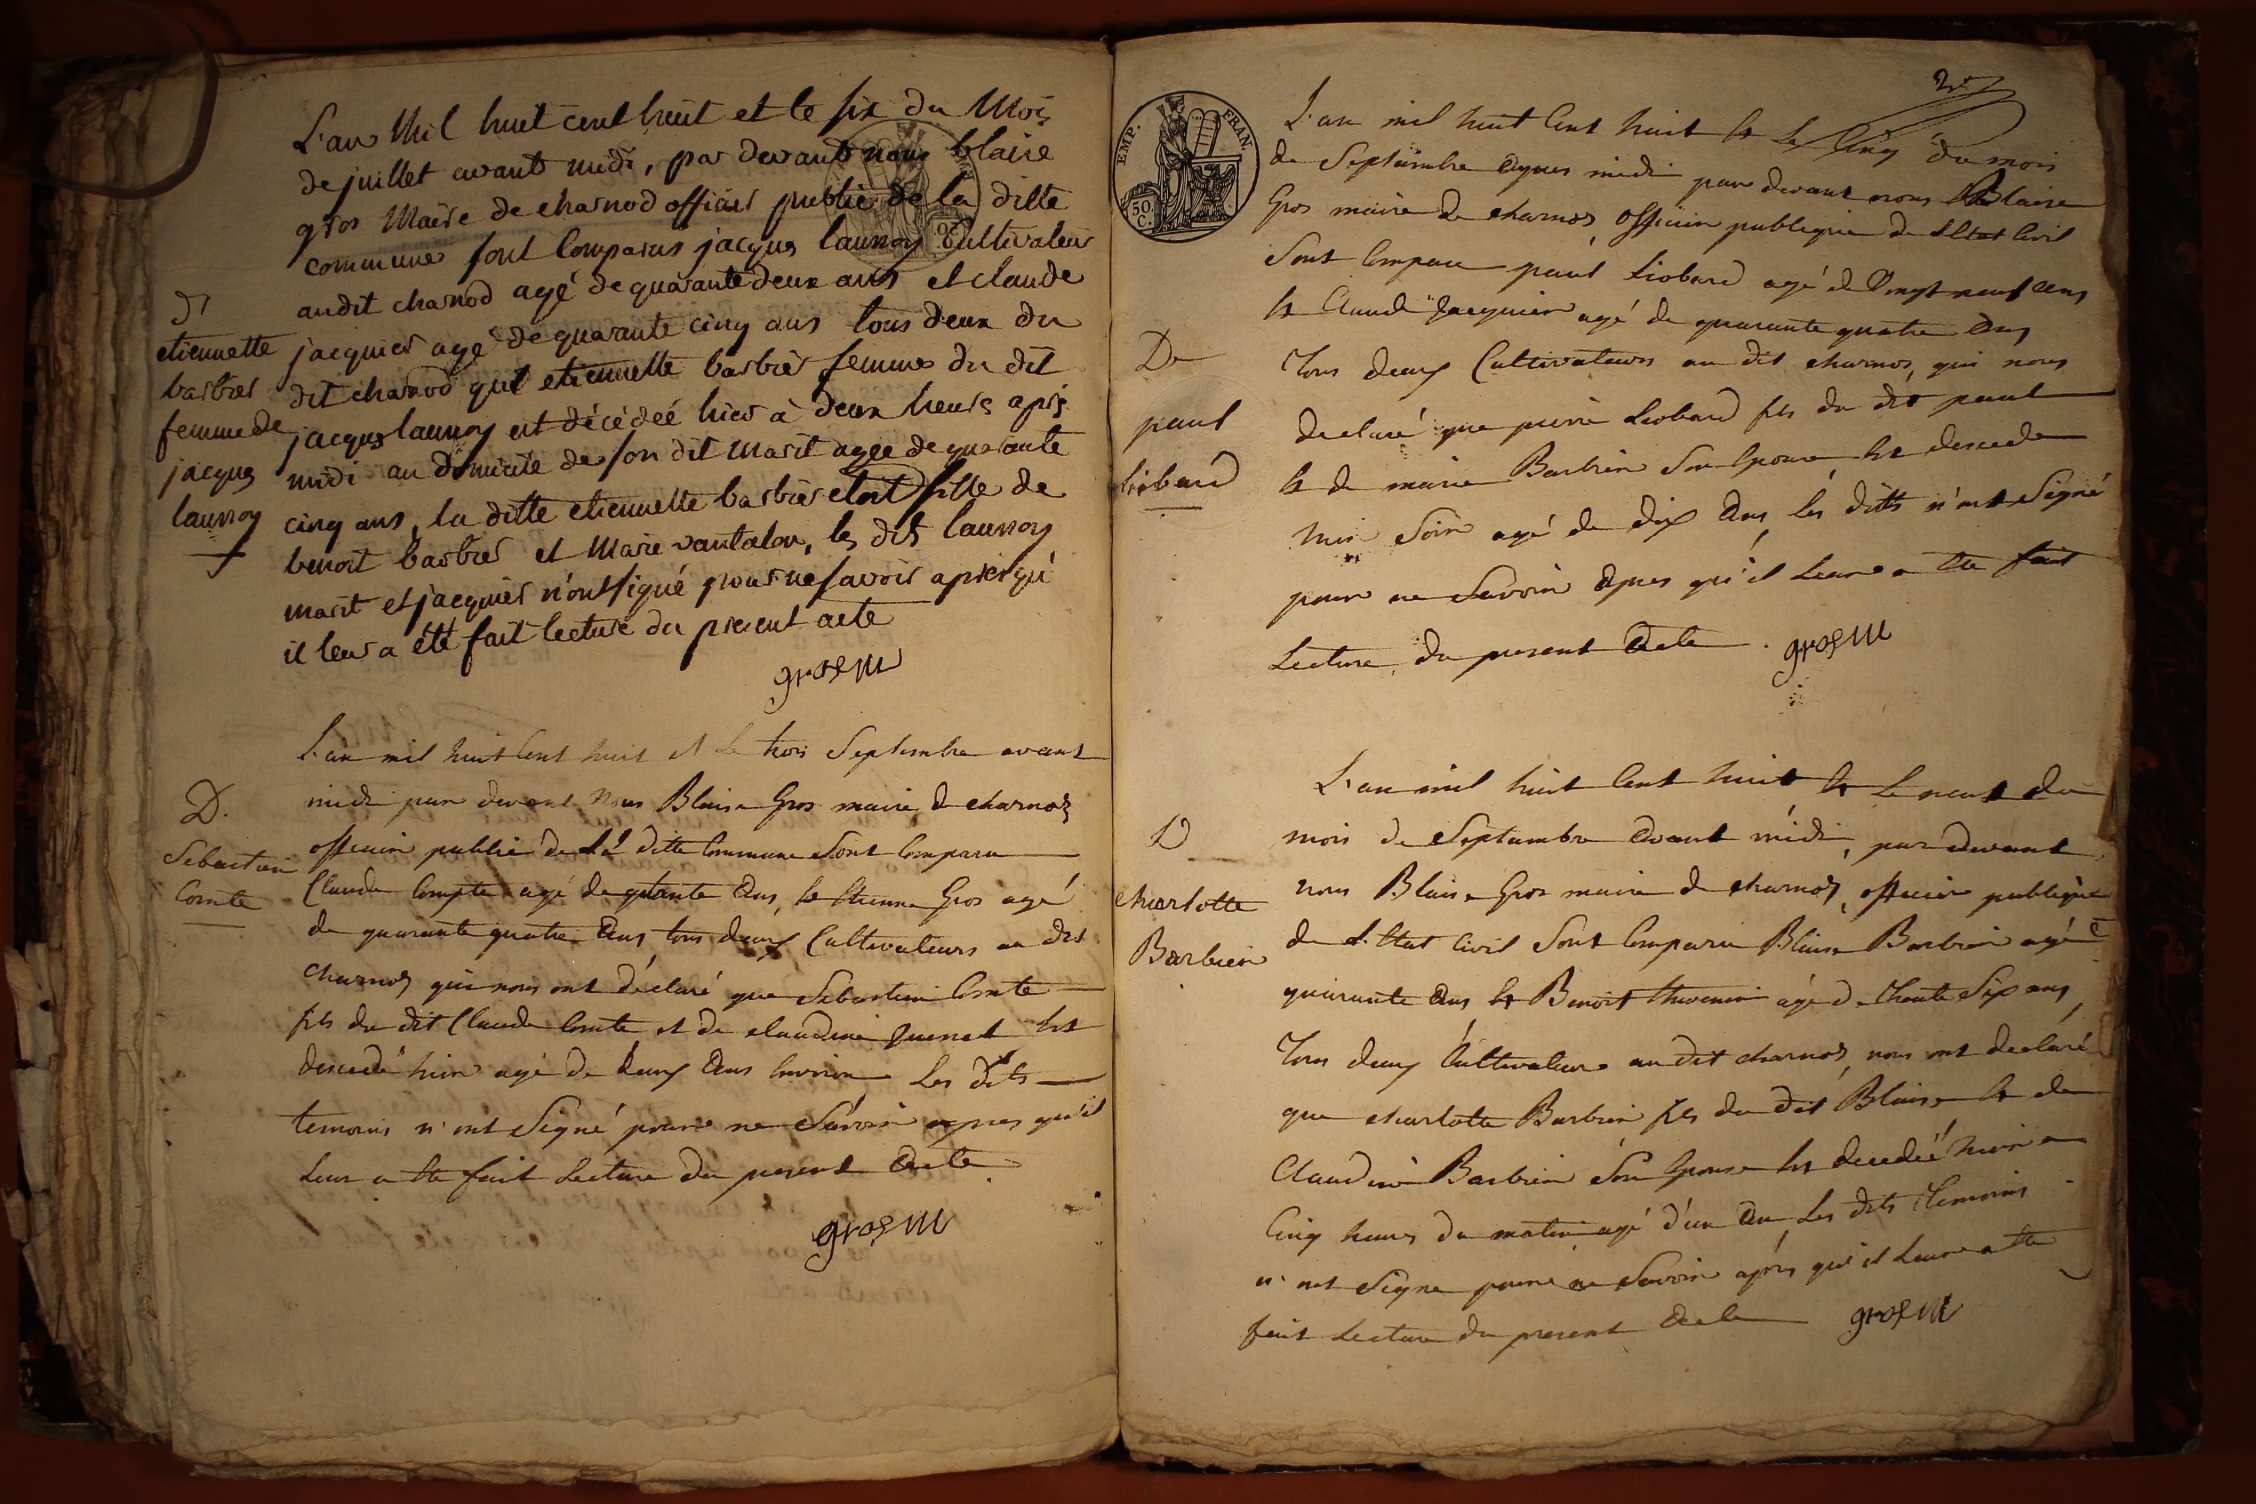 L'an Mil huit cent huit et le six du Mois
de juillet avant midi, par devant nous blaise
gros Maire de charnod officier public de la ditte
commune sont Comparus jacques launoy Cultivateur
audit charnod agé de quarante deux ans et claude
jacquier agé de quarante cinq ans tous deux du
dit charnod que etiennette barbier femme du dit
jacques launoy est décédeé hier à deux heures après
midi au domicile de son dit marit agée de quarante
cinq ans, la ditte etiennette barbier etoit fille de
benoit barbier et Marie vantalon, les dits launoy
marit et jacquier n'ont signé pour ne savoir après qu'
il leur a été fait lecture du present acte
gros M
D
etiennette
barbier
femme de
jacques
launoy
L'an mil huit Cent huit et le trois Septembre avant
midi par devant Nous Blaise Gros maire de charnod
officier public de la ditte Commune Sont Comparu
Claude Compte agé de ans, et Etienne Gros agé
de quarante quatre ans, tous deux Cultivateurs au dit
charnod qui nous ont déclaré que Sebastien Comte
fils du dit Claude Comte et de claudine est
descedé hier agé de deux ans Environ Les dits
temoins n'ont Signé pour ne Savoir apres qu'il
Leur a ete fait Lecture du present acte
gros M
D.
Sebastien
Comte
L'an mil huit Cent huit et Le Cinq du mois
de Septembre apres midi par devant nous Blaise
Gros maire de charnod officier publique de L'Etat Civil
Sont Comparu paul Liobard agé de Vingt neuf ans
et Claude Jacquier agé de quarante quatre ans
Tous deux Cultivateurs au dit charnod, qui nous
declaré que pierre Liobard fils du dit paul
et de marie Barbier Son Epouse Est descede
hier Soir agé de dix ans, les ditts n'ont Signé
pour ne Savoir apres qu'il Leur a ete fait
Lecture du present acte. gros M
De
paul
Liobard
EMP. FRAN.
50. C.
L'an mil huit Cent huit et Le neuf du
mois de Septembre avant midi, par devant
nous Blaise Gros maire de charnod, officier publique
de L'Etat Civil Sont Comparu Blaise Barbier agé
quarante ans et Benoit thevenin agé de Trente Six ans
Tous deux Cultivateurs au dit charnod, nous ont declaré
que charlotte Barbier fils du dit Blaise et de
Claudine Barbier Son Epouse Est decedéé hier a
Cinq heures du matin agé d'un an, Les dits Temoins
n'ont Signe pour ne Savoir après qu'il Leur a ete
fait Lecture du present acte gros M
D
charlotte
Barbier